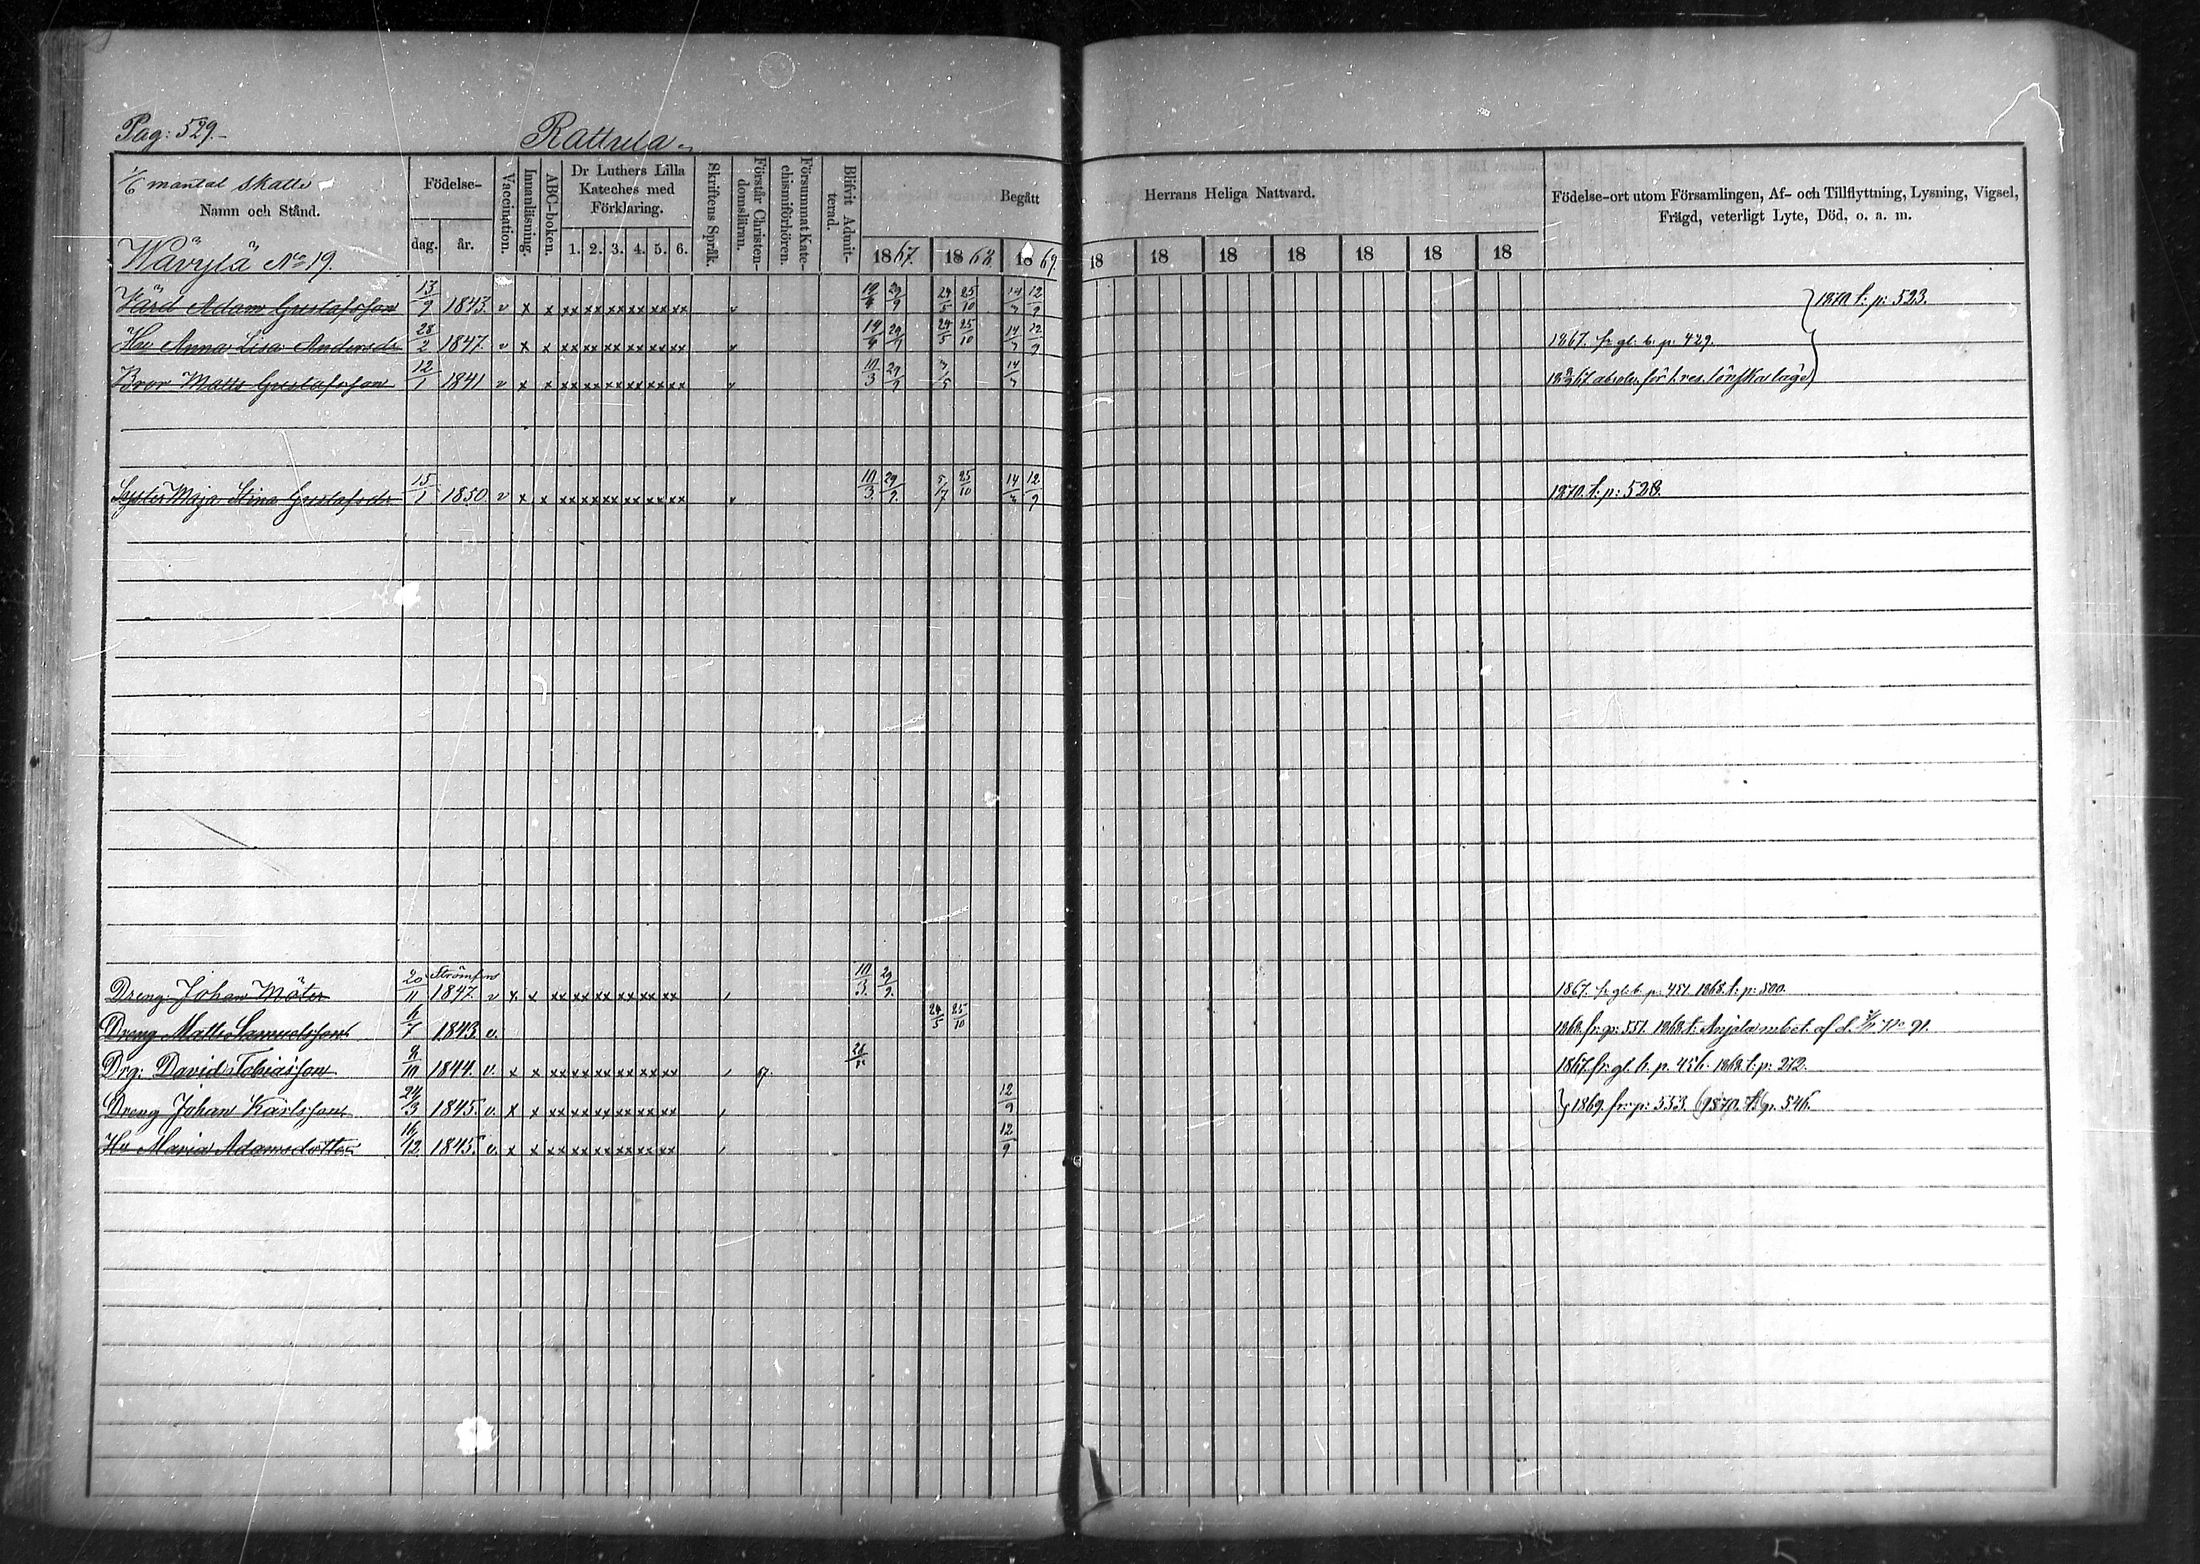 Pag: 529.
Rattula
1/6 mantal skatte
Namn och Stånd.
Födelse-
dag. år.
Vaccination.
Innanläsning.
ABC-boken.
Dr Luthers Lilla Kateches med Förklaring.
1. 2. 3. 4. 5. 6.
Skriftens Språk.
Förstår Christendomsläran.
Försummat Katechismiförhören.
Blifvit Admitterad.
Begått Herrans Heliga Nattvard.
1867. 1868. 1869. 18 18 18 18 18 18 18
Födelse-ort utom Församlingen, Af- och Tillflyttning, Lysning, Vigsel,
Frägd, veterligt Lyte, Död, o. a. m.
Wävylä No 19.
Adam Gustafsson 13/9 1843. v x x xx xx xx xx xx xx 29/9 24/5 25/10 12/9 1870 t. p: 523.
Hu Anna Lisa Andersdr 28/2 1847. v x x xx xx xx xx xx xx 29/9 24/5 25/10 12/9 1867. fr gl. b. p. 429.
Bror Matts Gustafsson 12/1 1841 v x x xx xx xx xx xx xx 10/3 29/9
Syster Maja Stina Gustafsdr 15/1 1850. v x x xx xx xx xx xx xx 10/3 29/9. 25/10 12/9 1870. t: p: 528.
Dreng Johan Möter 20/11 Strömfors 1847. v x x xx xx xx xx xx xx 10/3 29/9. 1867. fr gl. b. p. 451. 1868. t: p: 500.
Dreng Matts Samuelsson 6/7 1843. v. 24/5 25/10 1868. fr. p: 551. 1868. t: Anjala m. bet. af d. No 91.
Drg: David Tobiasson 2/10 1844. v. x x xx xx xx xx xx xx 67. 1867. fr. gl. b. p. 456. 1868. t: p: 272.
Dreng Johan Karlsson 24/3 1845. v. x x xx xx xx xx xx xx 12/9 1869. fr. p: 553. (1870. t. p. 546.
Hu Maria Adamsdotter 16/12 1845. v. x x xx xx xx xx xx xx 12/9